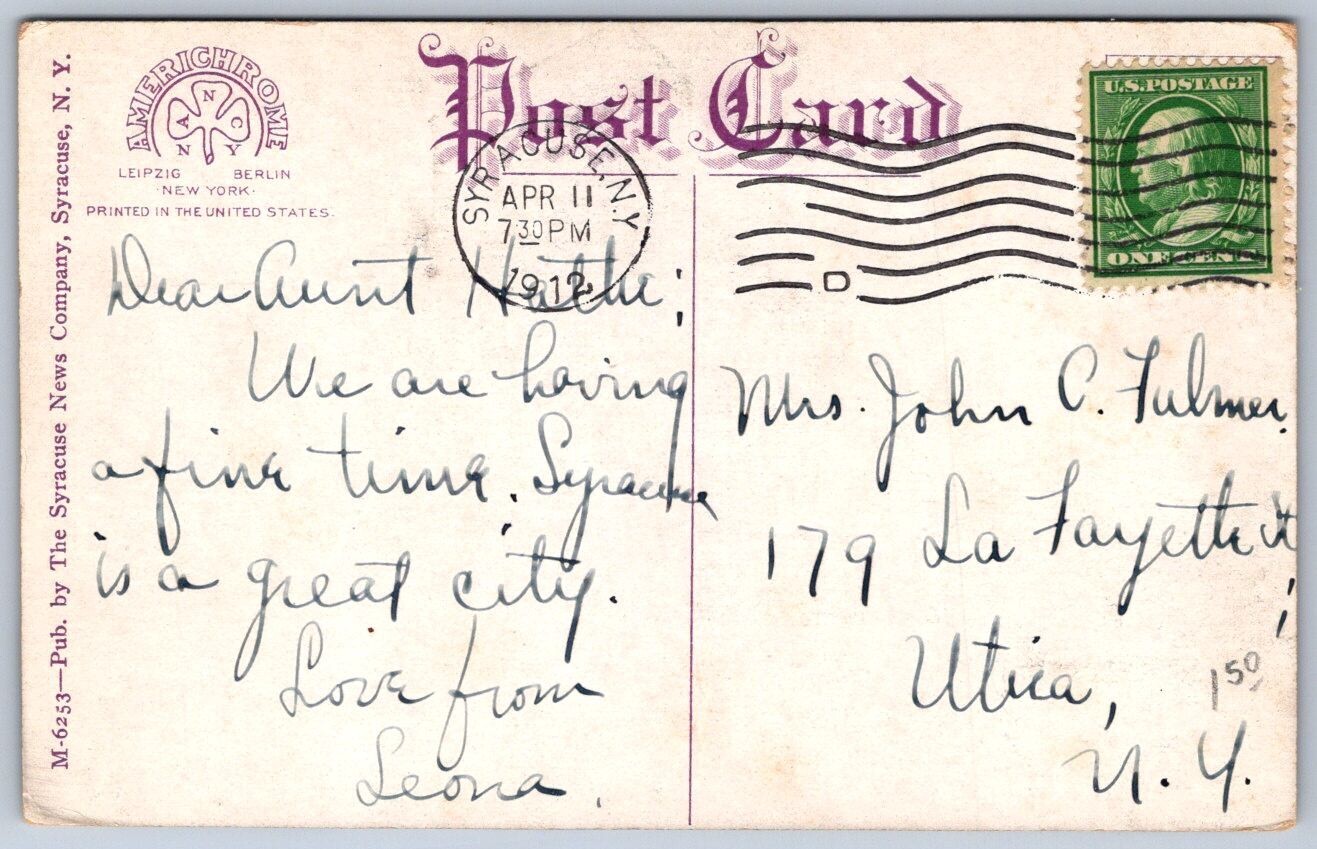 AMERICHROME
A N C
N Y
LEIPZIG BERLIN
·NEW YORK·
PRINTED IN THE UNITED STATES.
M-6253—Pub. by The Syracuse News Company, Syracuse, N. Y.
Post Card
SYRACUSE, N.Y.
APR 11
730 PM
1912
D
U.S. POSTAGE
ONE CENT
Dear Aunt Hattie;
We are having
a fine time. Syracuse
is a great city.
Love from
Leona.
Mrs. John C. Fulmer,
179 La Fayette St,
Utica,
N. Y.
150